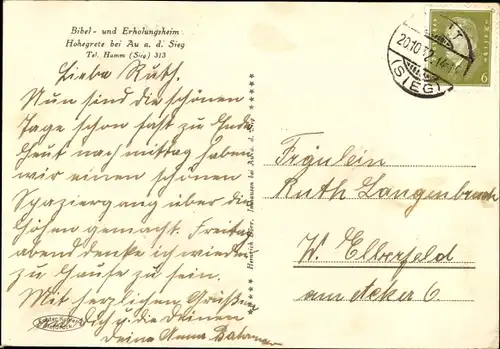 Bibel- und Erholungsheim
Hohegrete bei Au a. d. Sieg
Tel. Hamm (Sieg) 313
Liebe Ruth.
Nun sind die schönen
Tage schon fast zu Ende
Heut nach mittag haben
wir einen schönen
Spaziergang über die
Höhen gemacht. Freitag
abend denke ich wieder
zu Hause zu sein.
Mit herzlichen Grüßen
Dich u. die Deinen
Deine Anna
Fräulein
Ruth Langenbruch
W. Elberfeld
am Acker 6.
20.10.32
(SIEG)
6